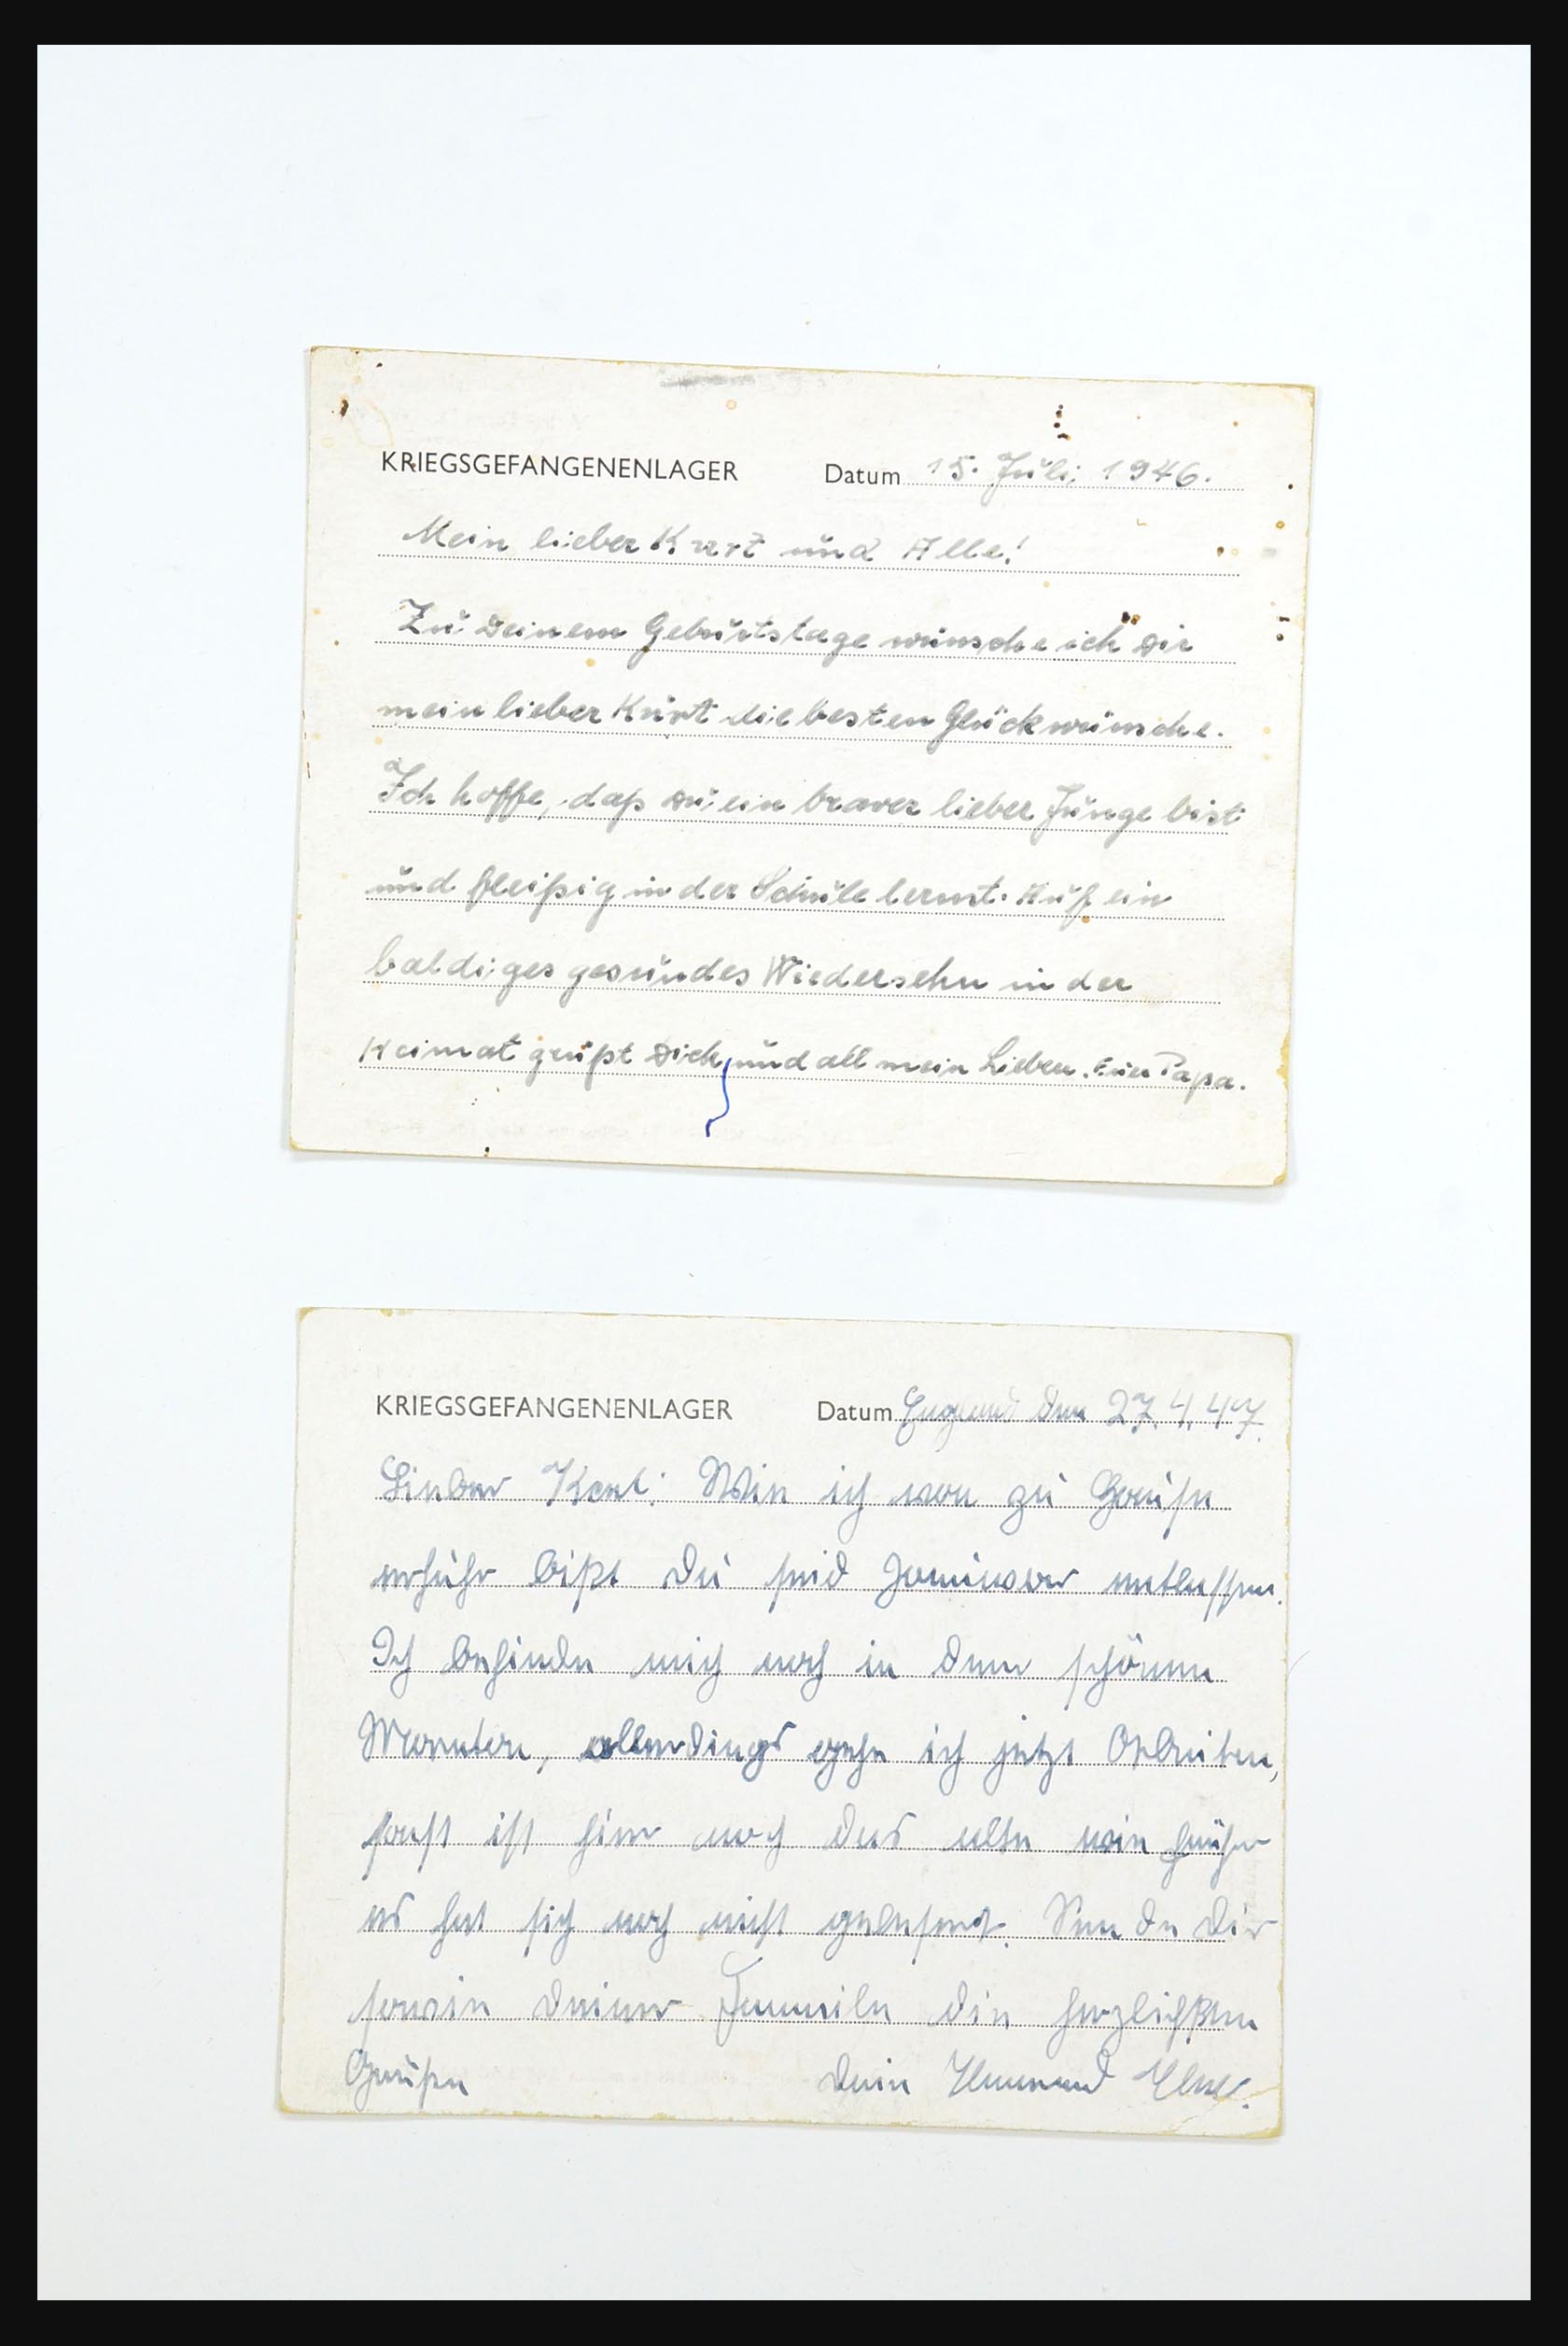 KRIEGSGEFANGENENLAGER Datum 15. Juli 1946.
Mein lieber Kurt und Alle!
Zu Deinem Geburtstage wünsche ich Dir
mein lieber Kurt die besten Glückwünsche.
Ich hoffe, daß Du ein braver lieber Junge bist
und fleißig in der Schule lernst. Auf ein
baldiges gesundes Wiedersehn in der
Heimat grüßt Dich und all mein Lieben. Euer Papa.
KRIEGSGEFANGENENLAGER Datum England den 27.4.47.
Lieber Karl! Wie ich von zu Hause
erfuhr bißt Du seid Januar entlassen.
Ich befinde mich noch in dem schönen
allerdings gehe ich jetzt Arbeiten,
sonst ist hier noch das alte wie früher
es hat sich noch nicht geändert. Sende Dir
sowie deiner Familie die herzlichsten
Grüße Dein